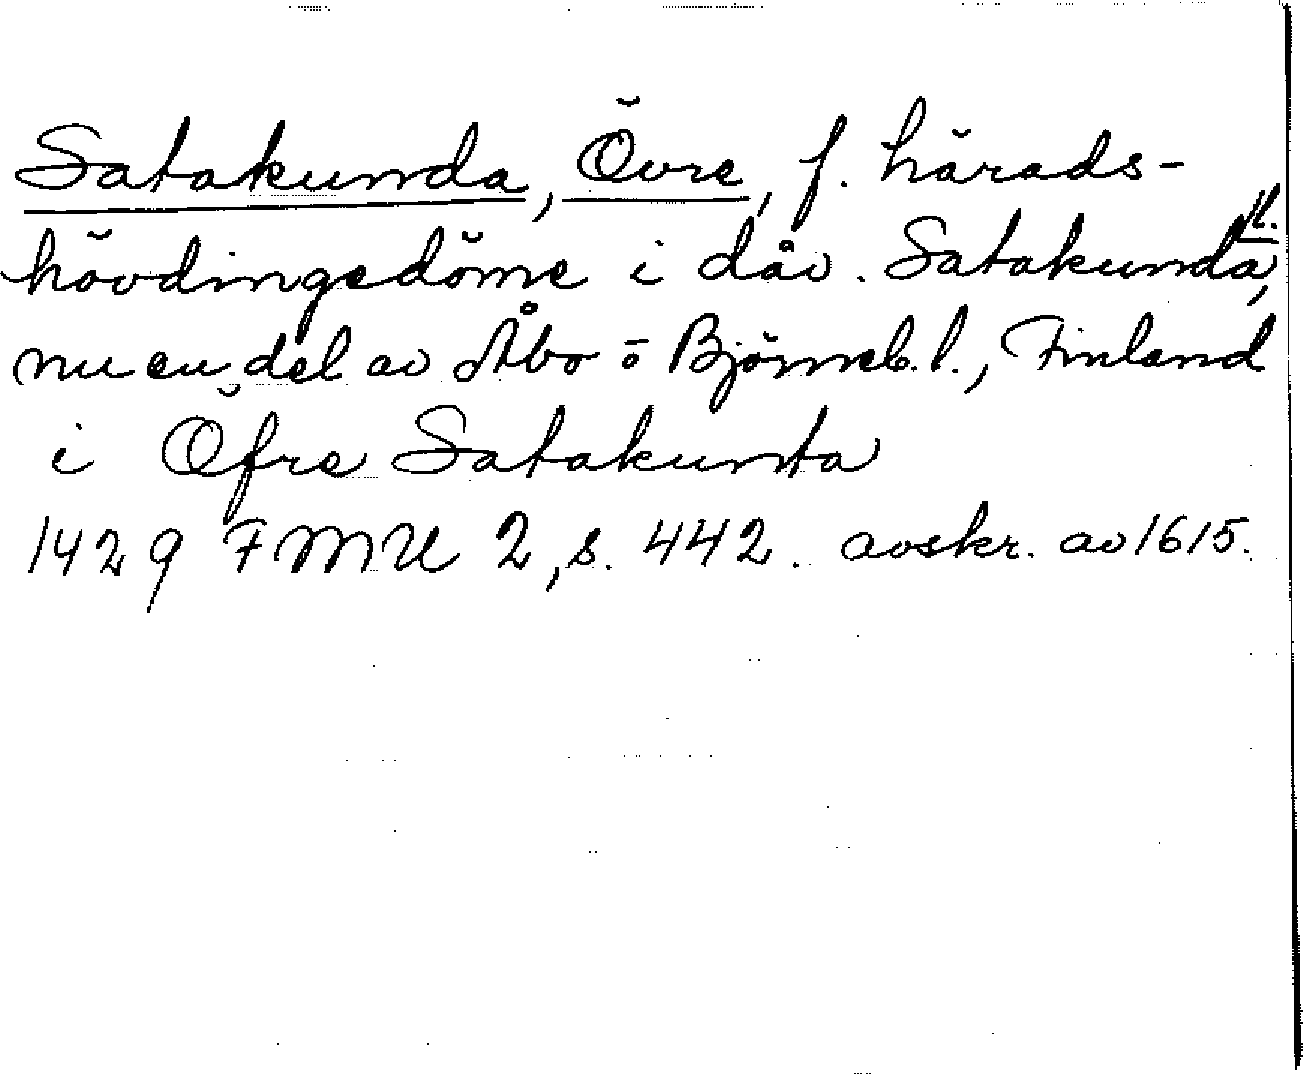 Satakunda, Övre, f. härads-
hövdingedöme i dåv. Satakunda ll.,
nu en del av Åbo o Björneb. l., Finland
i Öfre Satakunta
1429 FMU 2, s. 442. avskr. av 1615.